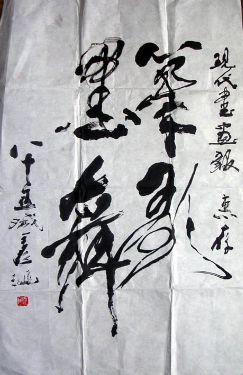 现代书画报 惠存
笔歌
墨舞
八十